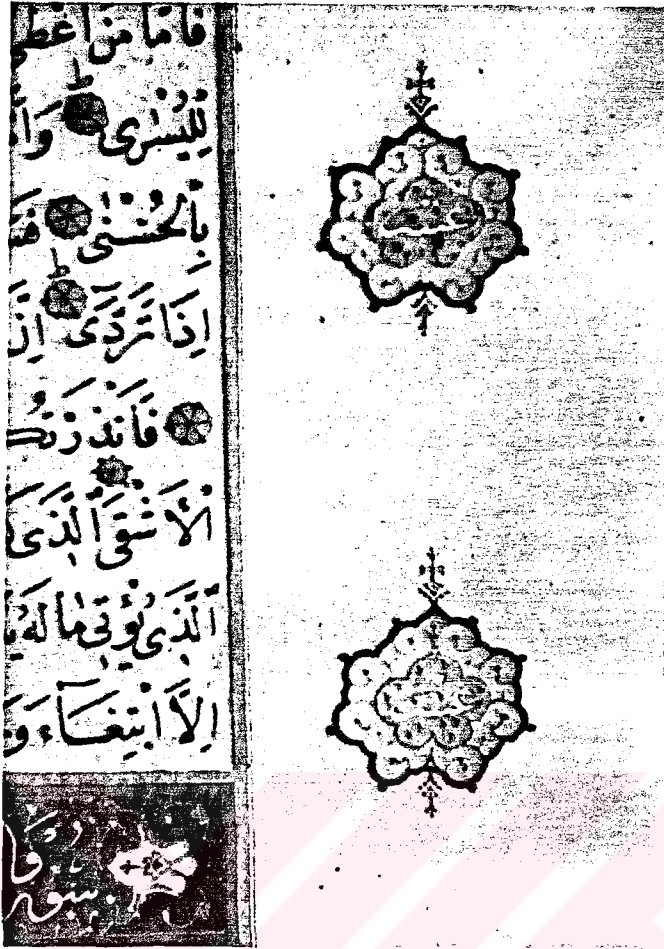 فَاَمَّا مَنْ اَعْطٰى
لِلْيُسْرٰى وَاَ
بِالْحُسْنٰى فَسَ
اِذَا تَرَدّٰىٓ اِنَّ
فَاَنْذَرْتُكُ
الْاَشْقَى الَّذٖى كَ
اَلَّذٖى يُؤْتٖى مَالَهُ يَ
اِلَّا ابْتِغَٓاءَ وَ
سورة وا